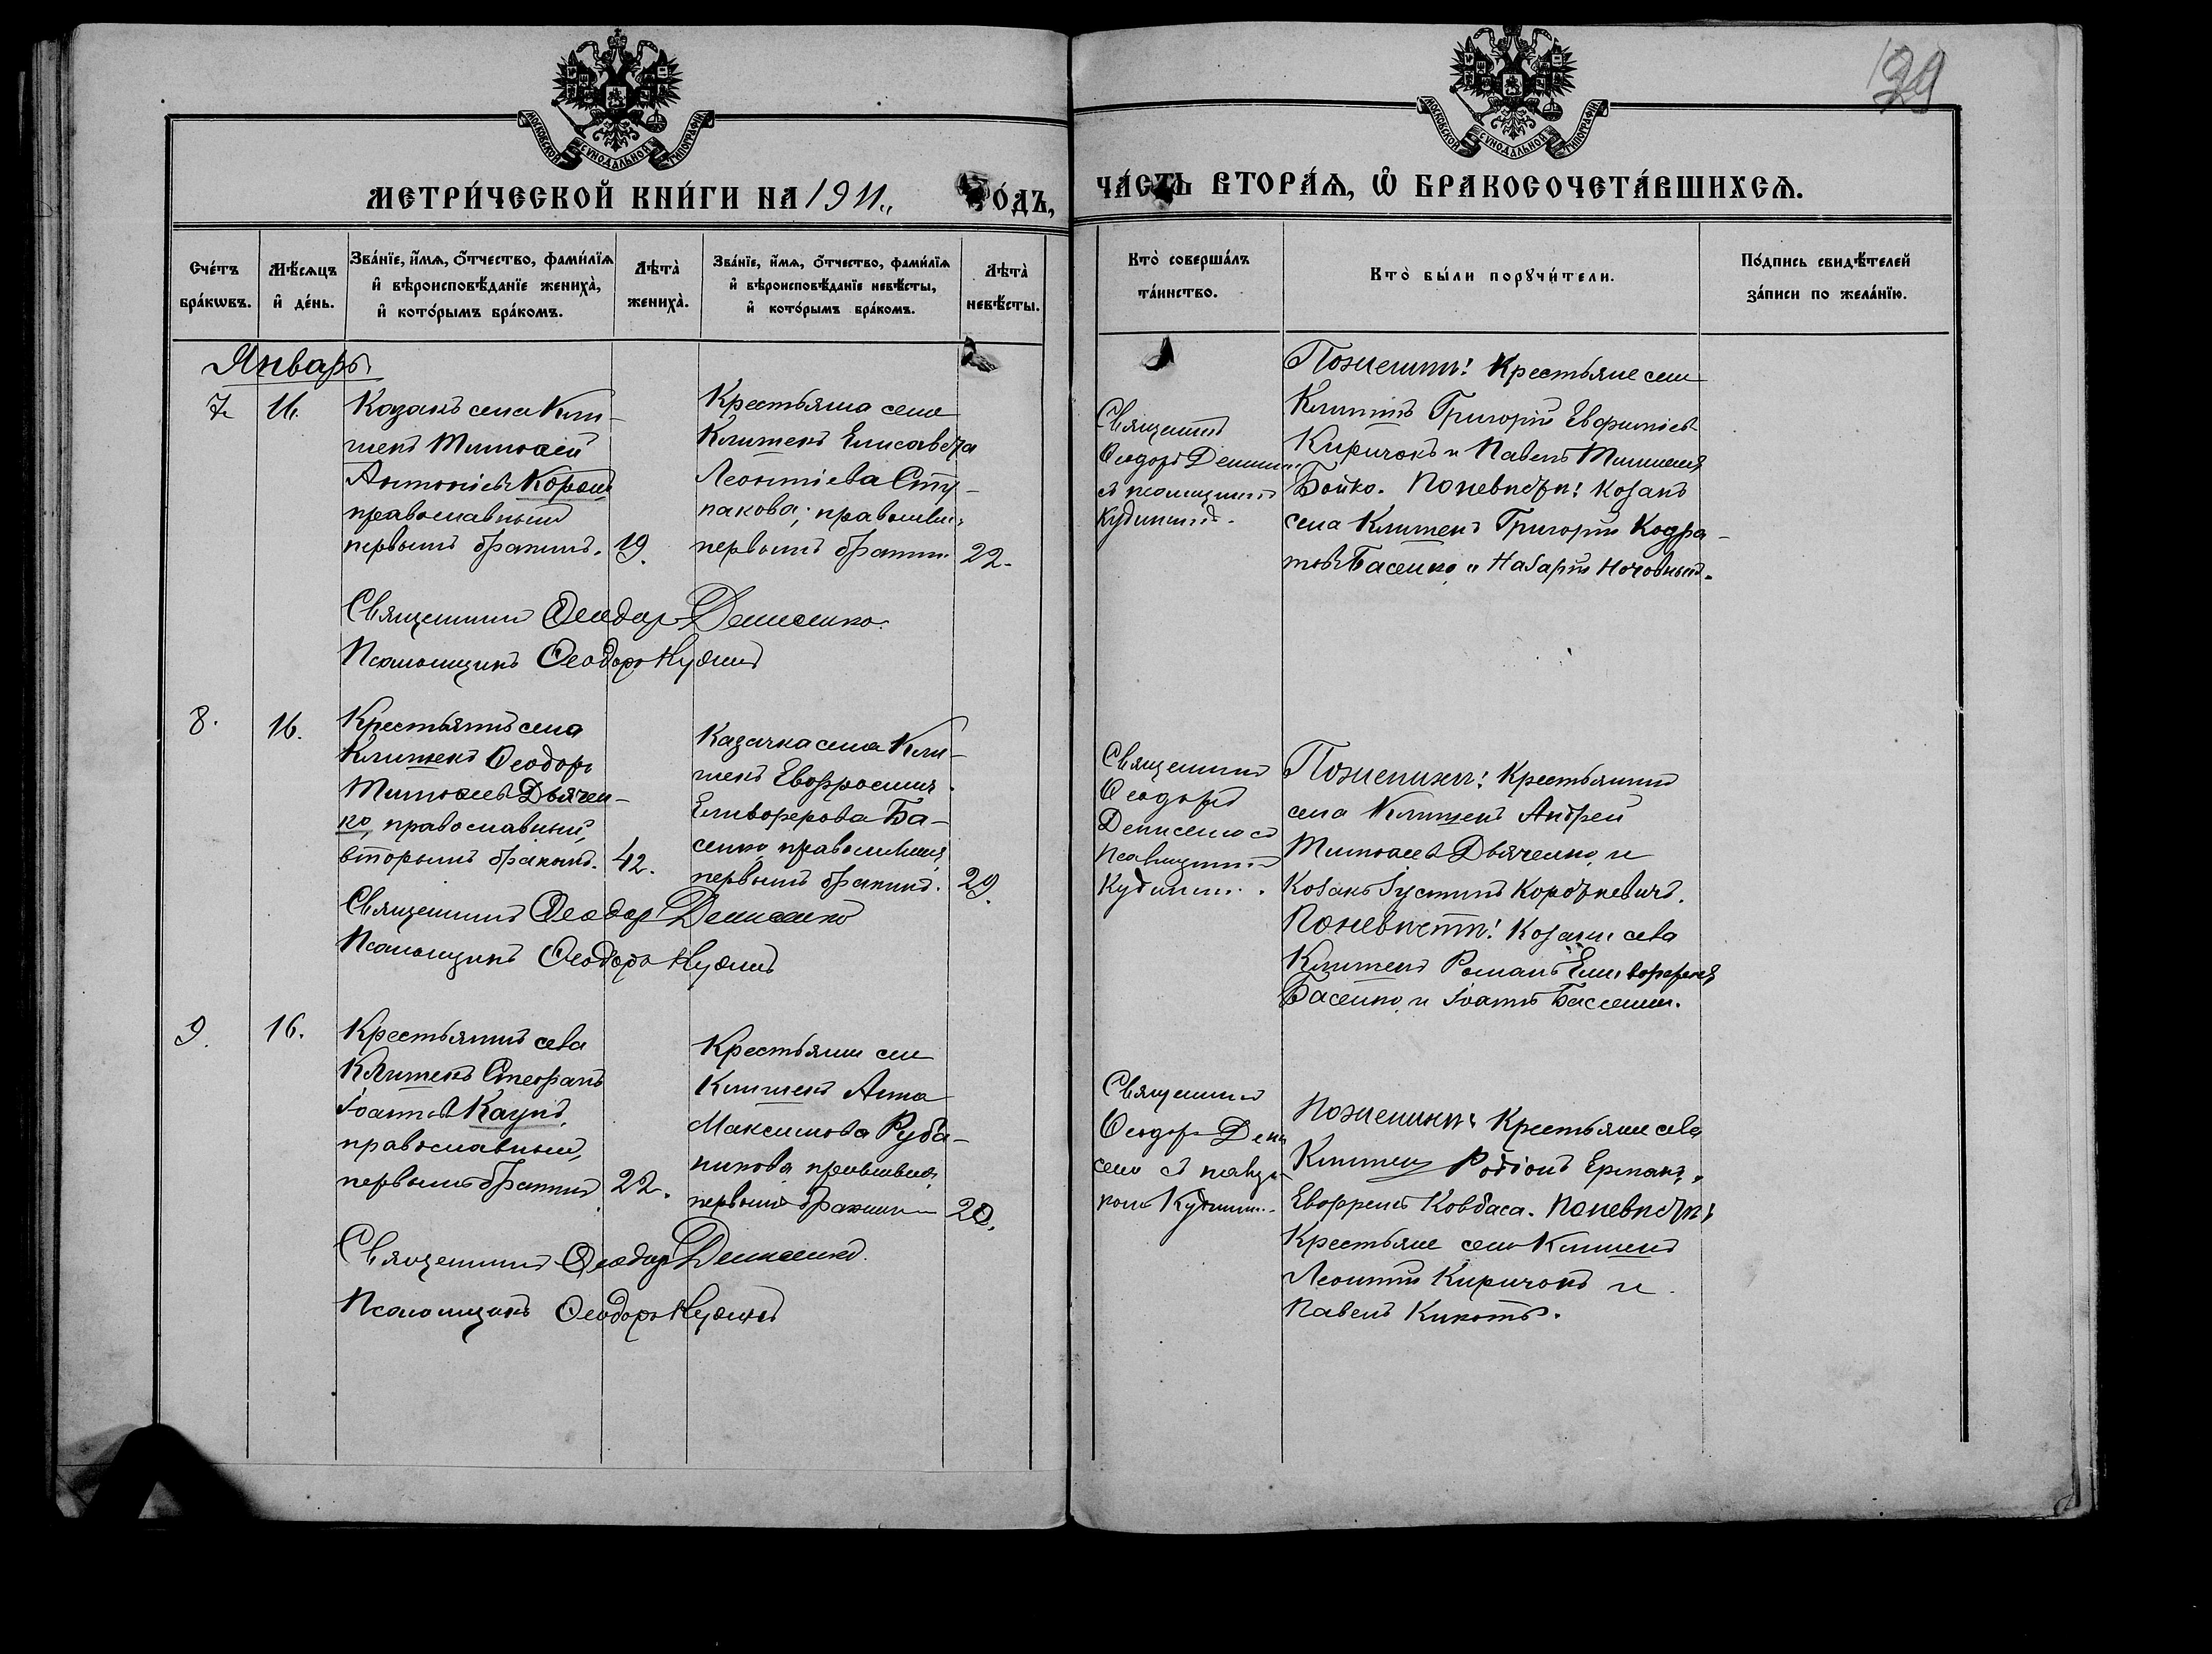 129
МОСКОВСКОЙ СѴНОДАЛЬНОЙ ТИПОГРАФІИ
МОСКОВСКОЙ СѴНОДАЛЬНОЙ ТИПОГРАФІИ
МЕТРИ́ЧЕСКОЙ КНИ́ГИ НА 1911 ГО́ДЪ,
ЧА́СТЬ ВТОРА́Ѧ, Ѿ БРАКОСОЧЕТА́ВШИХСѦ.
Сче́тъ
бра́кѡвъ.
Мѣ́сѧцъ
и҆ де́нь.
Зва́нїе, и҆́мѧ, ѻ҆́тчество, фами́лїѧ
и҆ вѣроисповѣ́данїе жениха̀,
и҆ кото́рымъ бра́комъ.
Лѣта̀
жениха̀.
Зва́нїе, и҆́мѧ, ѻ҆́тчество, фами́лїѧ
и҆ вѣроисповѣ́данїе невѣ́сты,
и҆ кото́рымъ бра́комъ.
Лѣта̀
невѣ́сты.
Кто̀ соверша́лъ
та́инство.
Кто̀ бы́ли порꙋчи́тели.
По́дпись свидѣ́телей
за́писи по жела́нїю.
Январь
7
16.
Казакъ села Кли-
шекъ Тимоѳей
Антоніевъ
православный
первымъ бракомъ.
19.
Крестьянка села
Клишекъ Елисавета
Леонтіева Сту-
пакова, православн.
первымъ бракомъ
22.
Священникъ
Ѳеодоръ Денисен.
съ псаломщикомъ
Кудинымъ.
По женихѣ: Крестьяне села
Клишекъ Григорій Евфиміевъ
Киричокъ и Павелъ Тимоѳеевъ
Бойко. По невѣстѣ: Козакъ
села Клишекъ Григорій Кодра-
товъ Басенко и Назарій Ночовный.
Священникъ Ѳеодоръ Денисенко.
Псаломщикъ Ѳеодоръ Кудинъ
8.
16.
Крестьянинъ села
Клишекъ Ѳеодоръ
Тимоѳеевъ Дьячен-
ко, православный,
вторымъ бракомъ.
42.
Казачка села Кли-
шекъ Евфросинія
Елевферова Ба-
сенко, православная,
первымъ бракомъ.
29.
Священникъ
Ѳеодоръ
Денисенко съ
псаломщикомъ
Кудинымъ.
По женихѣ: Крестьянинъ
села Клишекъ Андрей
Тимоѳеевъ Дьяченко, и
Козакъ Іустинъ Короткевичъ.
По невѣстѣ: Козаки села
Клишекъ Романъ Елевферіевъ
Басенко, и Іоаннъ Басенко.
Священникъ Ѳеодоръ Денисенко
Псаломщикъ Ѳеодоръ Кудинъ
9.
16.
Крестьянинъ села
Клишекъ Стефанъ
Іоанновъ Каунъ,
православный,
первымъ бракомъ
22.
Крестьянка села
Клишекъ Анна
Максимова Руба-
никова, православная,
первымъ бракомъ
20.
Священникъ
Ѳеодоръ Дени
сенко съ псаломщи-
комъ Кудинымъ.
По женихѣ: Крестьяне села
Клишекъ Родіонъ Ермакъ,
Евфремъ Ковбаса. По невѣстѣ:
Крестьяне села Клишекъ
Леонтій Киричокъ и
Павелъ Кикоть.
Священникъ Ѳеодоръ Денисенко.
Псаломщикъ Ѳеодоръ Кудинъ